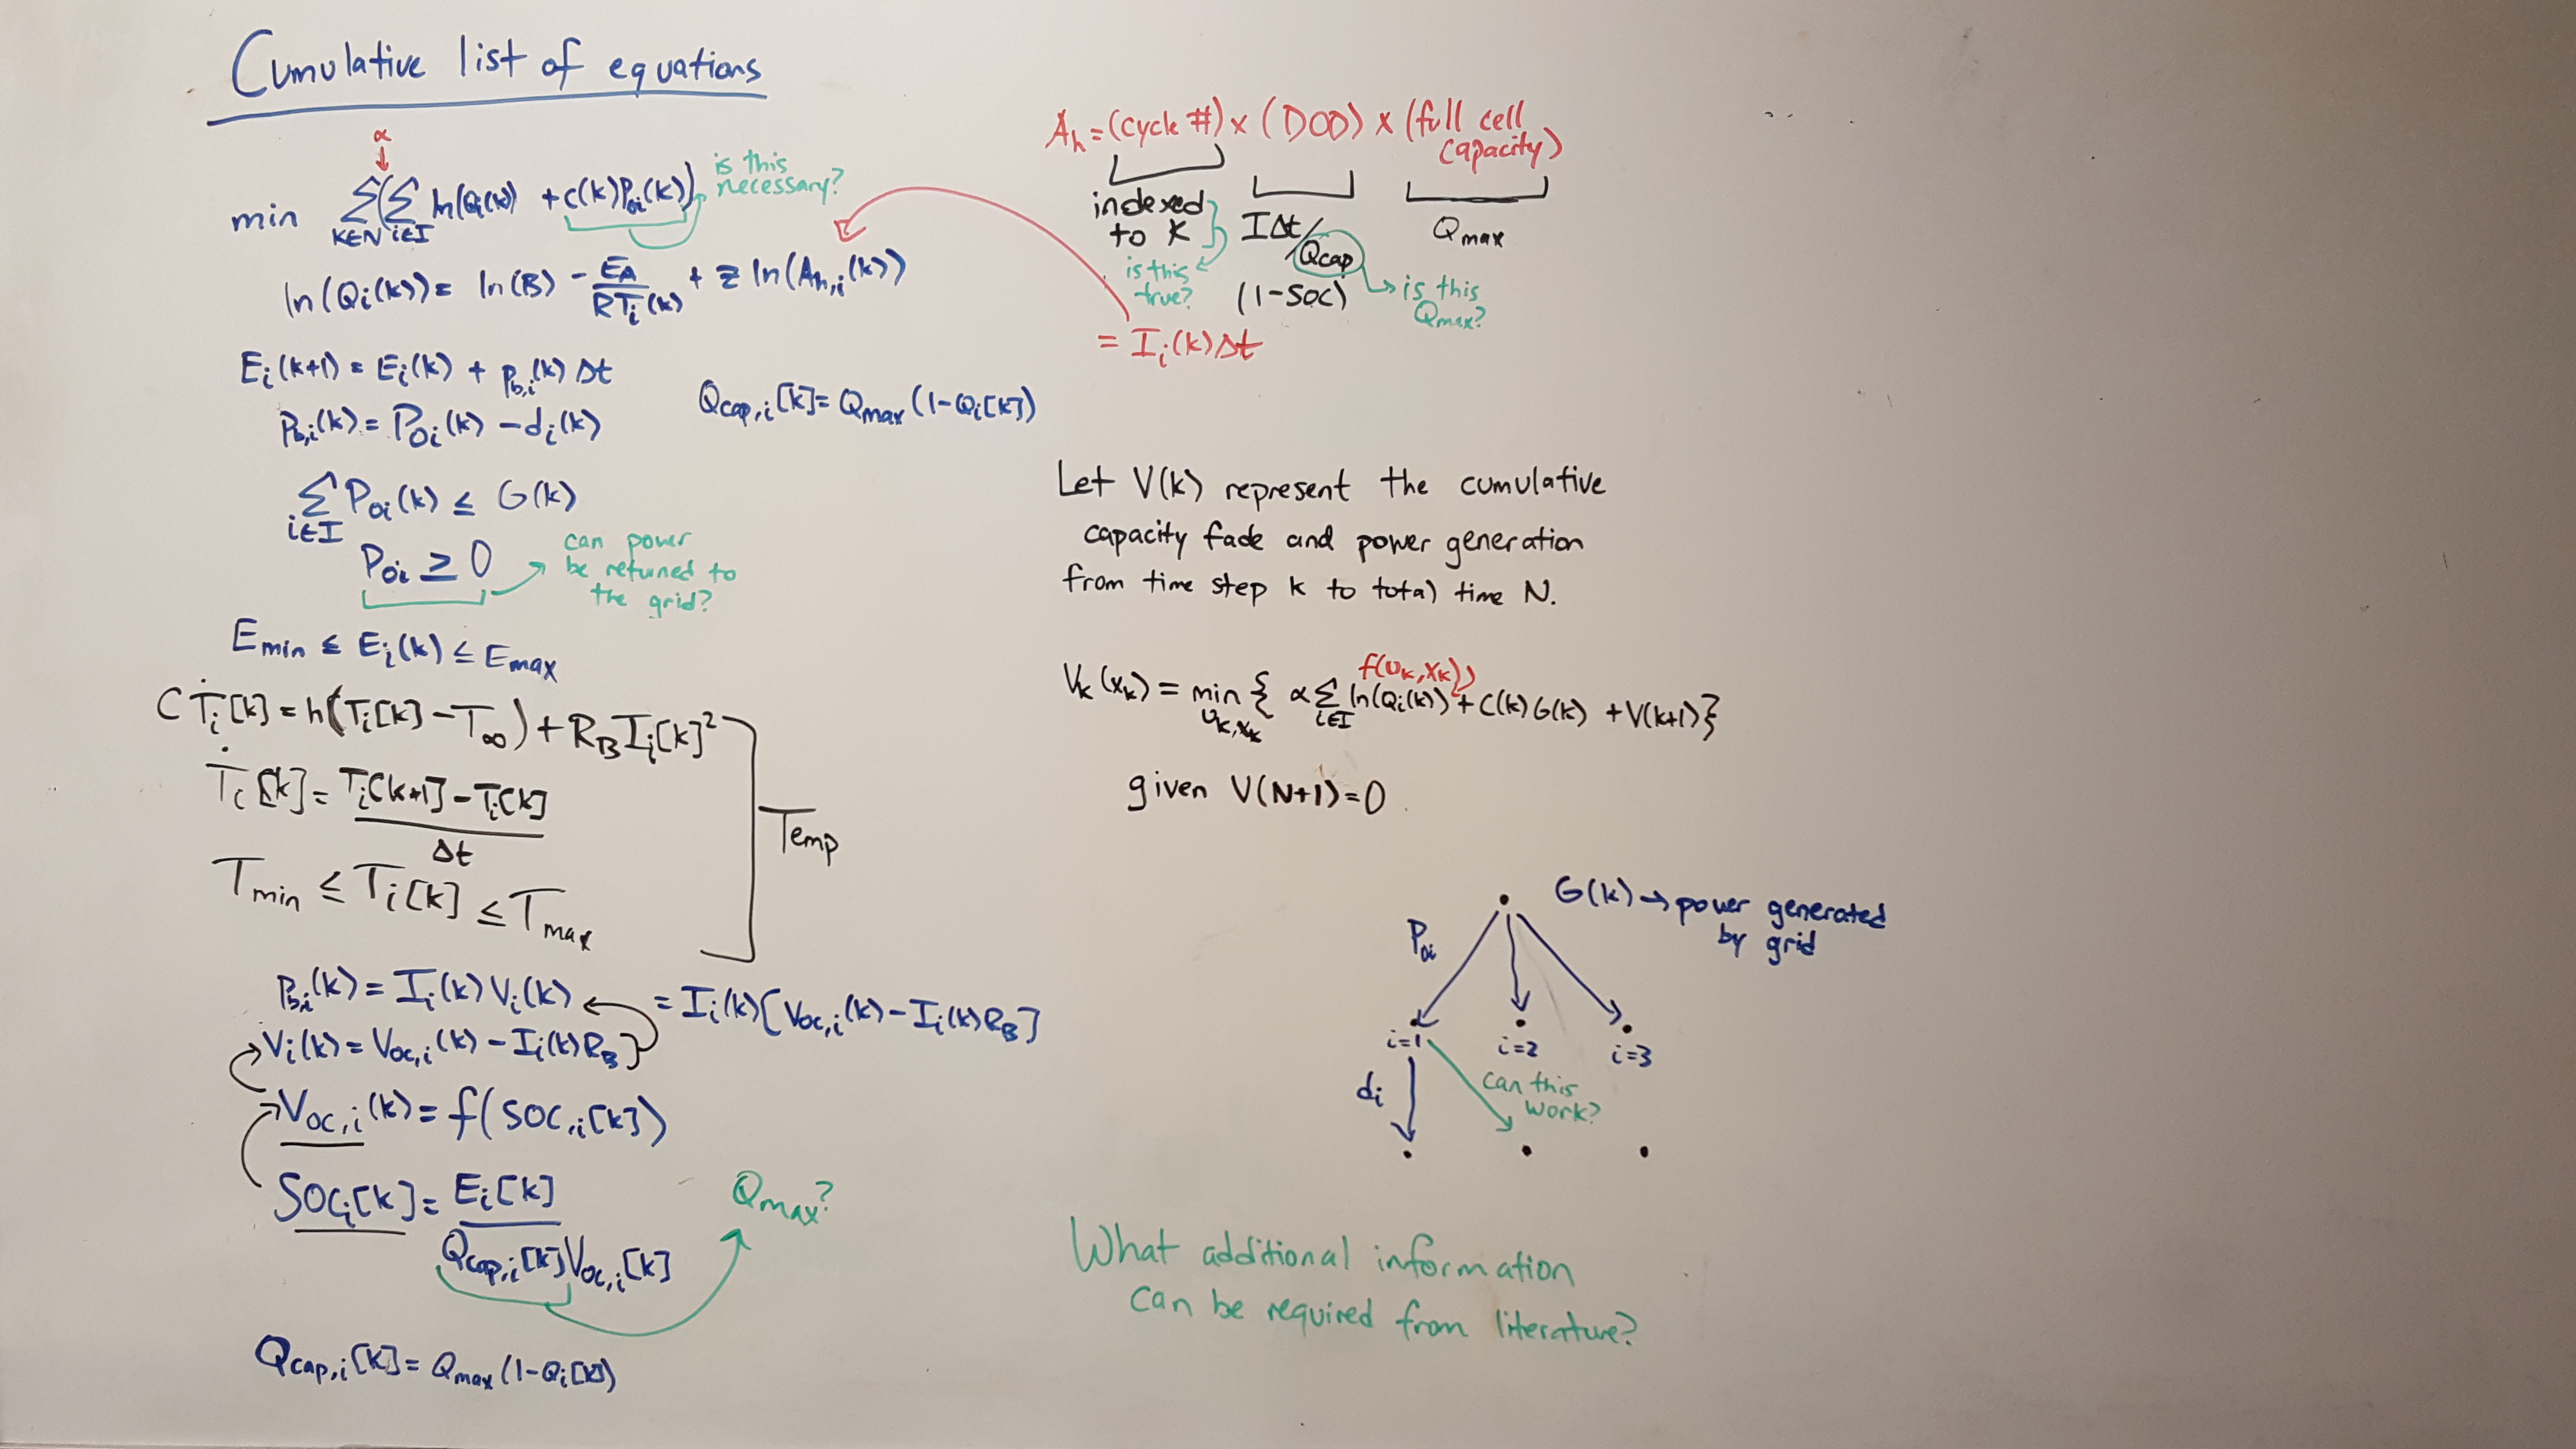 Cumulative list of equations
α
↓
min Σ_{k∈N} (Σ_{i∈I} ln(Qi(k)) + c(k)P0i(k))
is this
necessary?
ln(Qi(k)) = ln(B) - EA/RTi(k) + z ln(Ah,i(k))
Ei(k+1) = Ei(k) + Pb,i(k) Δt
Pb,i(k) = P0i(k) - di(k)
Qcap,i[k] = Qmax (1-Qi[k])
Σ_{i∈I} P0i(k) ≤ G(k)
P0i ≥ 0
can power
be returned to
the grid?
Emin ≤ Ei(k) ≤ Emax
C Ṫi[k] = h(Ti[k] - T∞) + RB Ii[k]²
Ṫi[k] = Ti[k+1] - Ti[k]
Δt
Tmin ≤ Ti[k] ≤ Tmax
Temp
Pb,i(k) = Ii(k) Vi(k) = Ii(k)[Voc,i(k) - Ii(k)RB]
Vi(k) = Voc,i(k) - Ii(k)RB
Voc,i(k) = f(SOC,i[k])
SOCi[k] = Ei[k]
Qcap,i[k] Voc,i[k]
Qmax?
Qcap,i[k] = Qmax (1-Qi[k])
Ah = (cycle #) x (DOD) x (full cell
capacity)
indexed
to k
is this
true?
IΔt/Qcap
(1-SOC)
is this
Qmax?
Qmax
= Ii(k)Δt
Let V(k) represent the cumulative
capacity fade and power generation
from time step k to total time N.
f(uk,xk)
Vk(xk) = min_{uk,xk} { α Σ_{i∈I} ln(Qi(k)) + C(k)G(k) + V(k+1)}
given V(N+1)=0
G(k) → power generated
by grid
P0i
i=1
i=2
i=3
di
can this
work?
What additional information
can be required from literature?